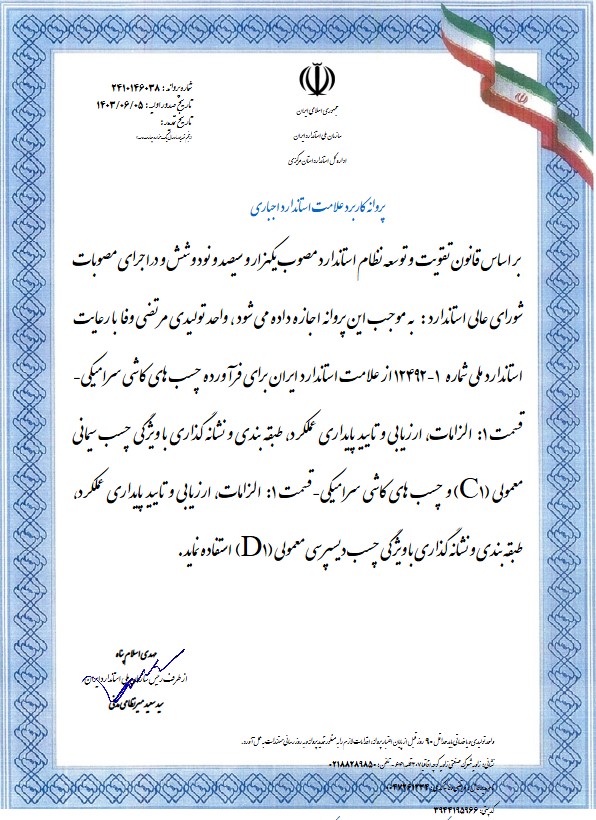 شماره پروانه: ۲۴۱۰۱۴۶۰۳۸
تاریخ صدور اولیه: ۱۴۰۳/۰۶/۰۵
تاریخ تمدید:
جمهوری اسلامی ایران
سازمان ملی استاندارد ایران
اداره کل استاندارد استان مرکزی
پروانه کاربرد علامت استاندارد اجباری
بر اساس قانون تقویت و توسعه نظام استاندارد مصوب یکهزار و سیصد و نود و شش و در اجرای مصوبات
شورای عالی استاندارد: به موجب این پروانه اجازه داده می شود، واحد تولیدی مرتضی وفا با رعایت
استاندارد ملی شماره ۱-۱۲۴۹۲ از علامت استاندارد ایران برای فرآورده چسب های کاشی سرامیکی-
قسمت ۱: الزامات، ارزیابی و تایید پایداری عملکرد، طبقه بندی و نشانه گذاری با ویژگی چسب سیمانی
معمولی (C۱) و چسب های کاشی سرامیکی-قسمت ۱: الزامات، ارزیابی و تایید پایداری عملکرد،
طبقه بندی و نشانه گذاری با ویژگی چسب دیسپرسی معمولی (D۱) استفاده نماید.
مهدی اسلام پناه
از طرف رئیس سازمان ملی استاندارد ایران
سید سعید میرنظامی مدنی
واحد تولیدی و یا خدماتی باید حداقل ۹۰ روز قبل از پایان اعتبار پروانه، اقدامات لازم را به منظور تمدید پروانه و به روز رسانی مستندات به عمل آورد.
نشانی: زاویه شهرک صنعتی زاویه کوچه اقاقیا ۷ قطعه - تلفن: ۰۲۱۸۸۲۸۹۸۵۰
۰۰۴۷۲۶۱۲۳۴
کدپستی: ۳۹۴۴۱۹۵۹۶۶